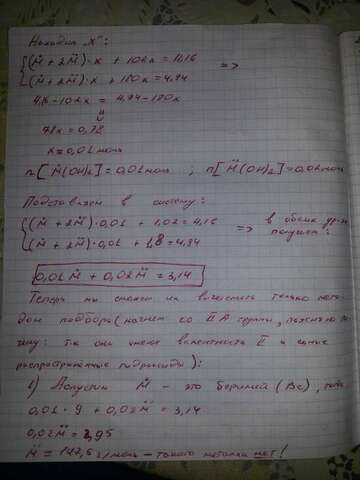 Находим "х":
{(M̈ + 2M̈)·x + 102x = 4,16
{(M̈ + 2M̈)·x + 180x = 4,94 =>
4,16 - 102x = 4,94 - 180x
⇓
78x = 0,78
x = 0,01 моль
n[M̈(OH)₂] = 0,01 моль ; n[M̈(OH)₂] = 0,02 моль
Подставляем в систему:
{(M̈ + 2M̈)·0,01 + 1,02 = 4,16
{(M̈ + 2M̈)·0,01 + 1,8 = 4,94 => в обоих ур-ях получаем:
0,01M̈ + 0,02M̈ = 3,14
Теперь мы сможем их вычислить только мето-
дом подбора (начнем со II A группы, поясню по-
чему: т.к они имеют валентность II и самые
распространенные гидроксиды):
1) Допустим M̈ - это бериллий (Be), тогда
0,01 · 9 + 0,02M̈ = 3,14
0,02M̈ = 2,95
M̈ = 147,5 г/моль - такого металла нет!